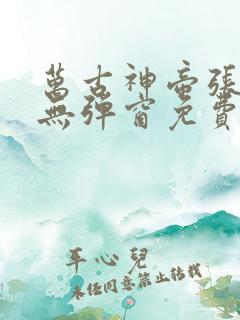 萬古神帝張
無彈窗免費
平心兒
未經同意禁止轉載